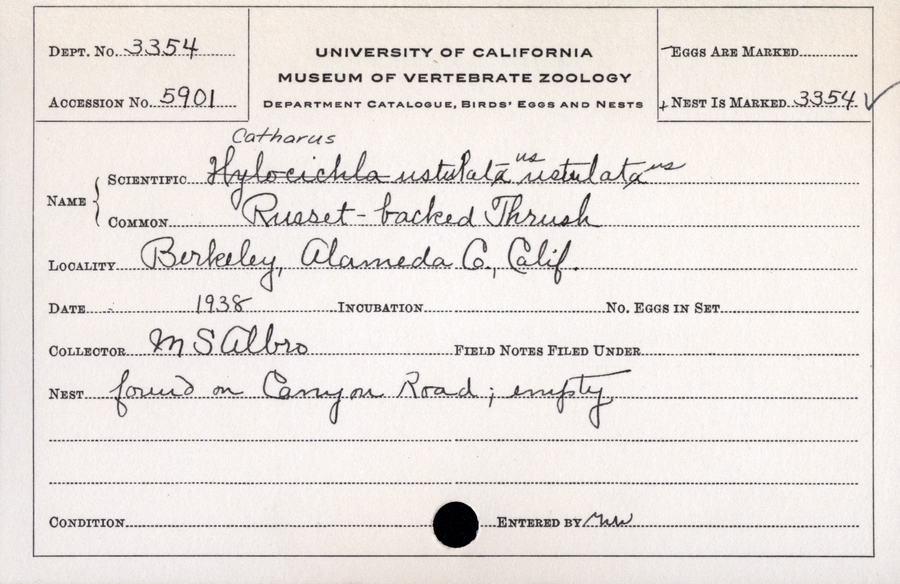 DEPT. NO. 3354
UNIVERSITY OF CALIFORNIA
MUSEUM OF VERTEBRATE ZOOLOGY
DEPARTMENT CATALOGUE, BIRDS' EGGS AND NESTS
EGGS ARE MARKED
ACCESSION NO. 5901
NEST IS MARKED 3354 ✓
Catharus
NAME
SCIENTIFIC Hylocichla ustulata us ustulata us
COMMON Russet-backed Thrush
LOCALITY Berkeley, Alameda Co., Calif.
DATE 1938 INCUBATION NO. EGGS IN SET
COLLECTOR M S Albro FIELD NOTES FILED UNDER
NEST found on Canyon Road; empty
CONDITION ENTERED BY